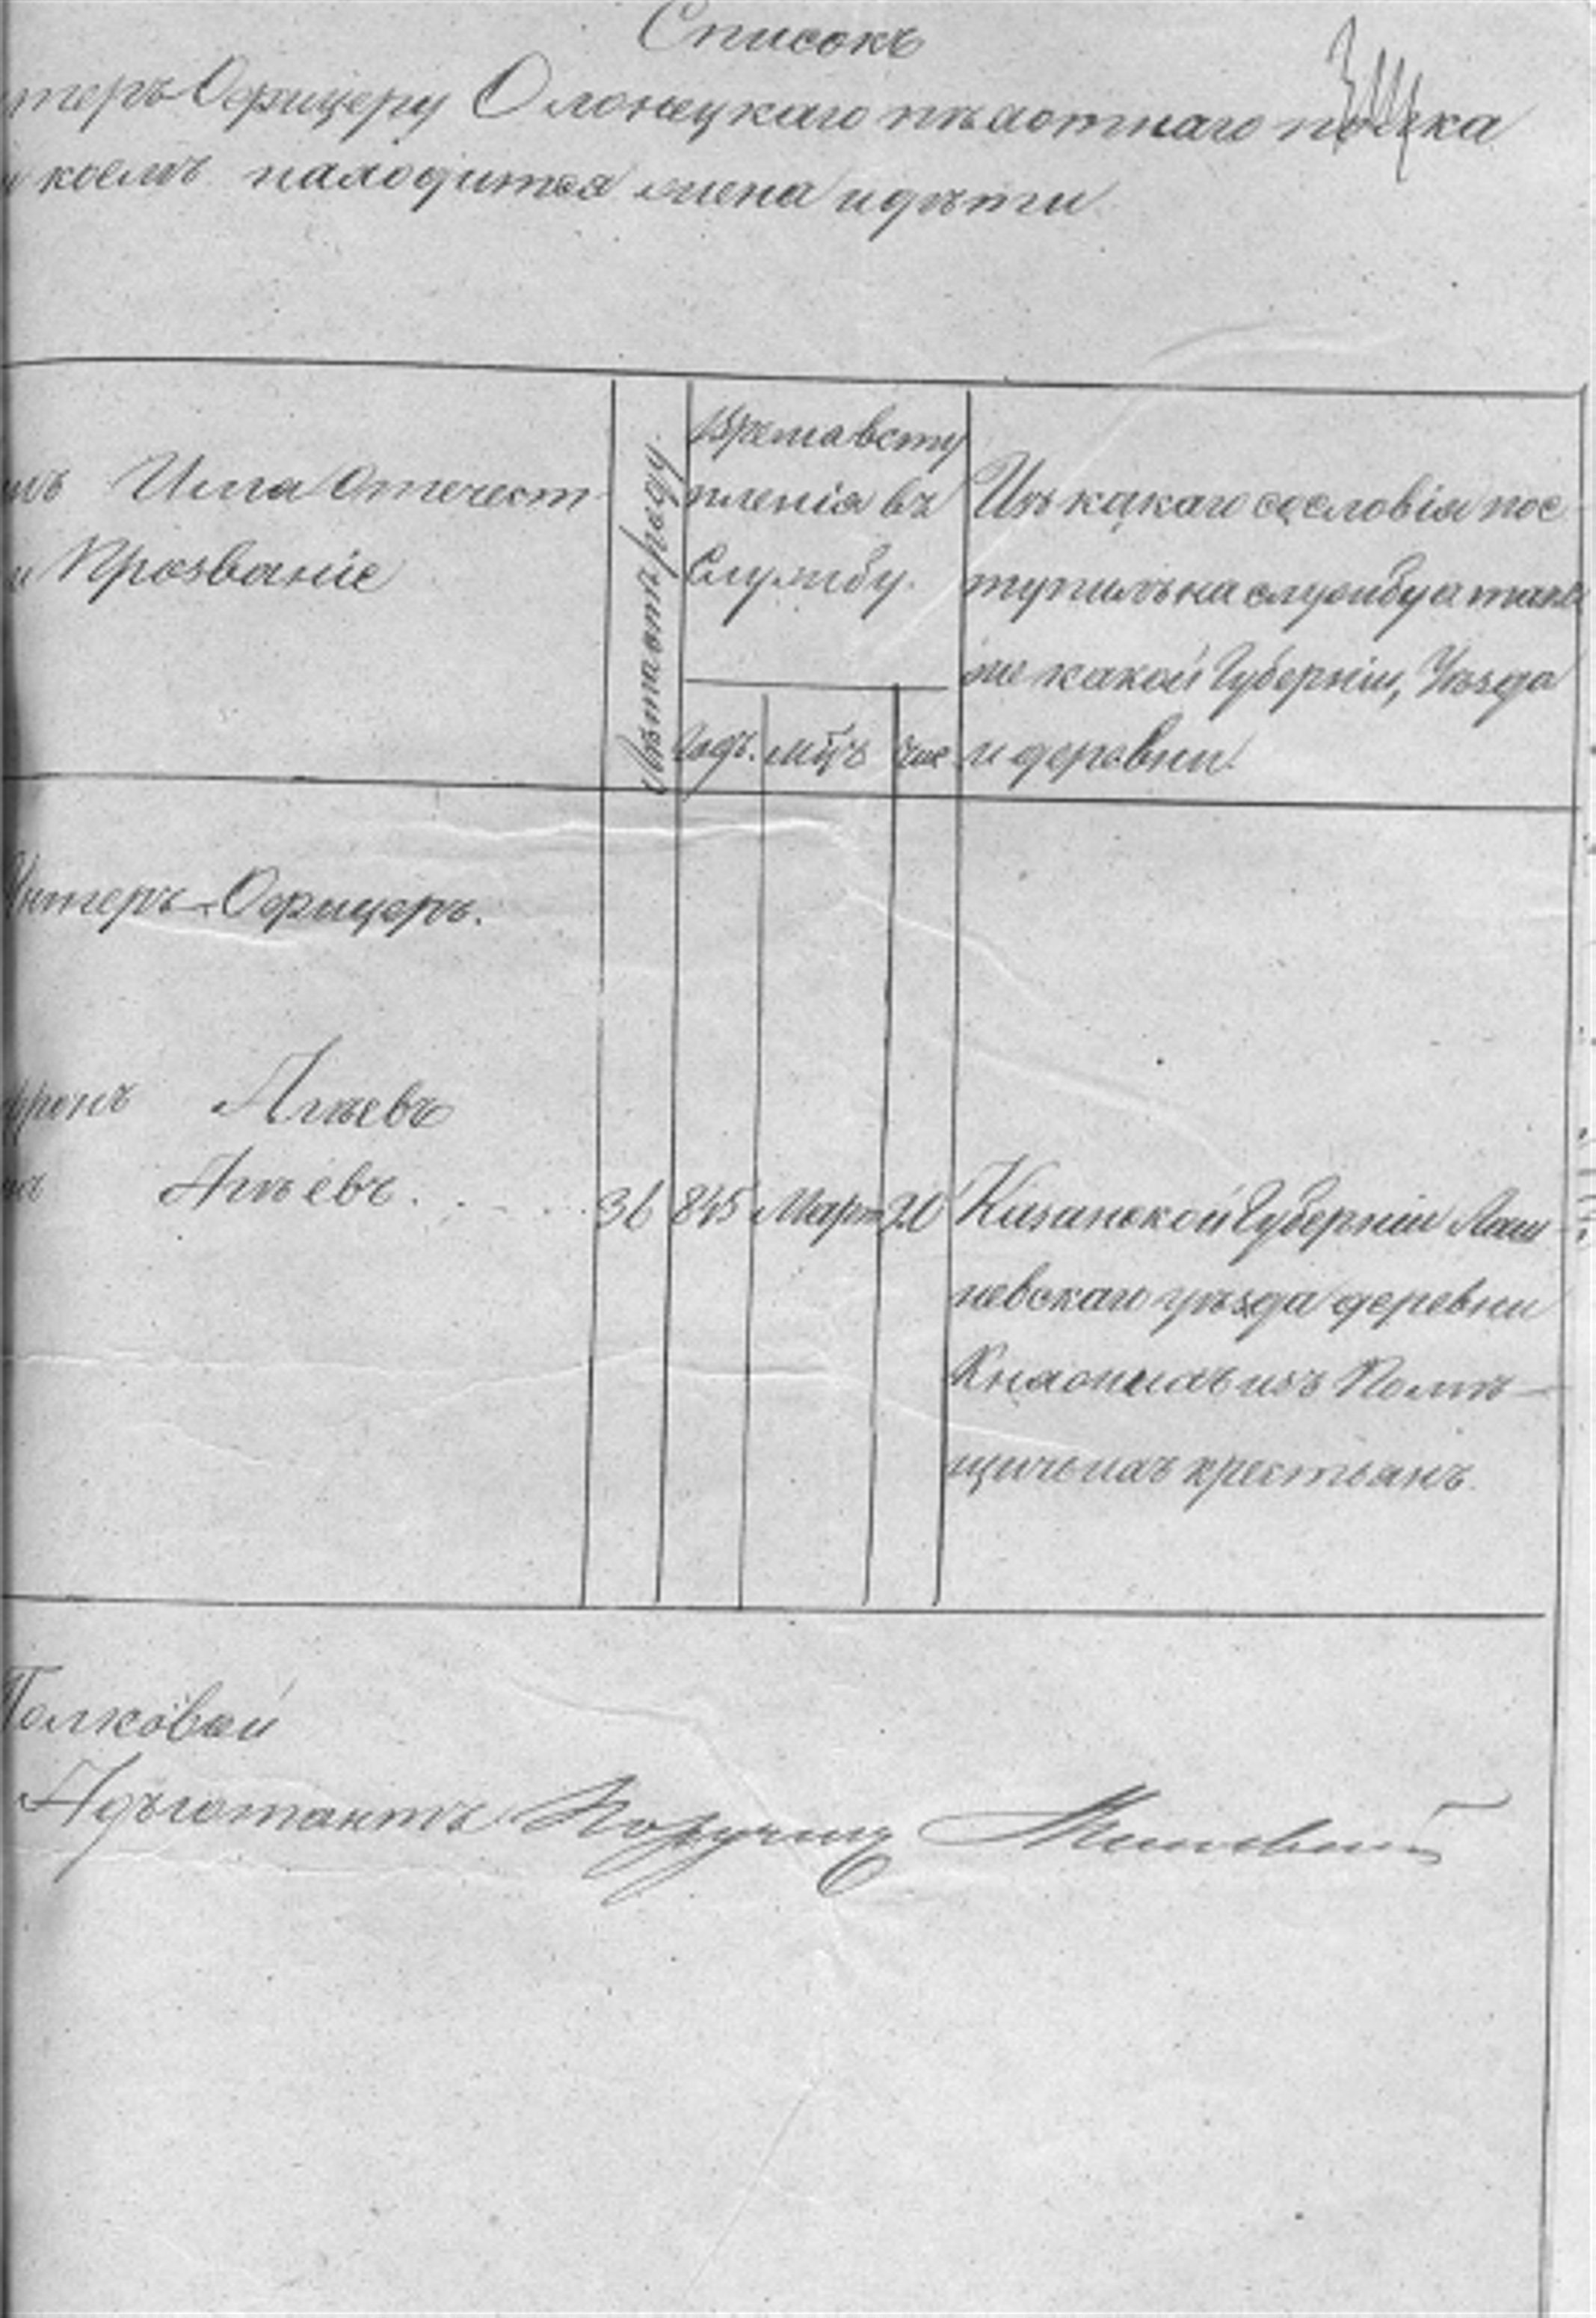 Списокъ
теръ-Офицеру Олонецкаго пѣхотнаго полка
коемъ находится жена и дѣти
Имя Отечест
и Прозваніе
Лѣта отъ роду.
Время всту
пленія въ
Службу.
Годъ. мцъ чис.
Изъ какаго сословія пос
тупилъ на службу а такъ
же какой Губерніи, Уѣзда
и деревни.
Унтеръ-Офицеръ.
Агѣевъ
Агѣевъ
36 845 Март 20 Казанской Губерніи Лаи
шевскаго уѣзда деревни
изъ Помѣ-
щичьихъ крестьянъ.
Полковой
Адъютантъ Поручикъ